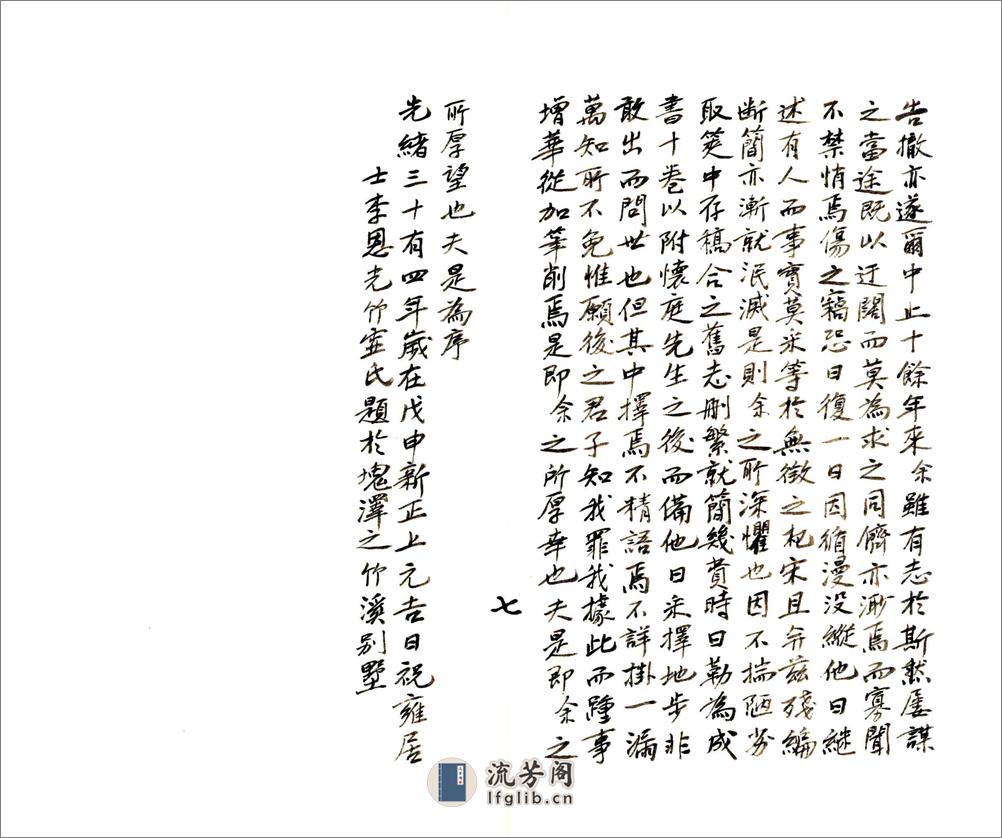 告撤亦遂爾中止十餘年來余雖有志於斯然屢謀
之當途既以迂闊而莫為求之同儕亦渺焉而寡聞
不禁悄焉傷之竊恐日復一日因循漫没縱他日繼
述有人而事實莫采等於無徵之杞宋且并茲殘編
断簡亦漸就泯滅是則余之所深懼也因不揣陋劣
取筴中存稿合之舊志刪繁就簡幾費時日勒為成
書十卷以附懷庭先生之後而備他日采擇地步非
敢出而問世也但其中擇焉不精語焉不詳掛一漏
萬知所不免惟願後之君子知我罪我據此而踵事
增華從加筆削焉是即余之所厚幸也夫是即余之
七
所厚望也夫是為序
光緒三十有四年歲在戊申新正上元吉日祝雍居
士李恩光竹虛氏題於塊澤之竹溪別墅
流芳阁
lfglib.cn